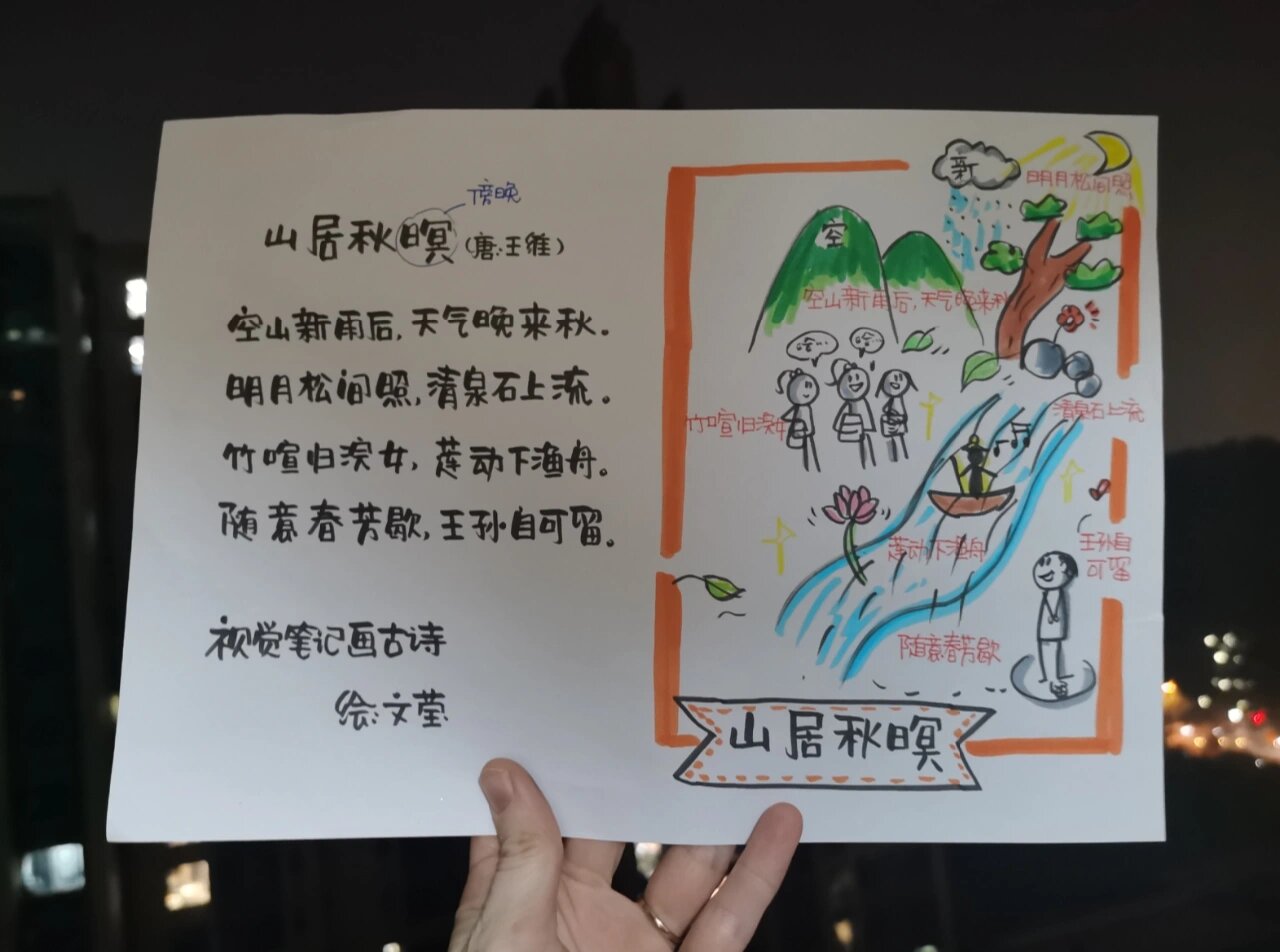 傍晚
山居秋暝(唐:王维)
空山新雨后,天气晚来秋。
明月松间照,清泉石上流。
竹喧归浣女,莲动下渔舟。
随意春芳歇,王孙自可留。
视觉笔记画古诗
绘:文莹
新
明月松间照
空
空山新雨后,天气晚来秋
竹喧归浣女
清泉石上流
莲动下渔舟
王孙自
可留
随意春芳歇
山居秋暝